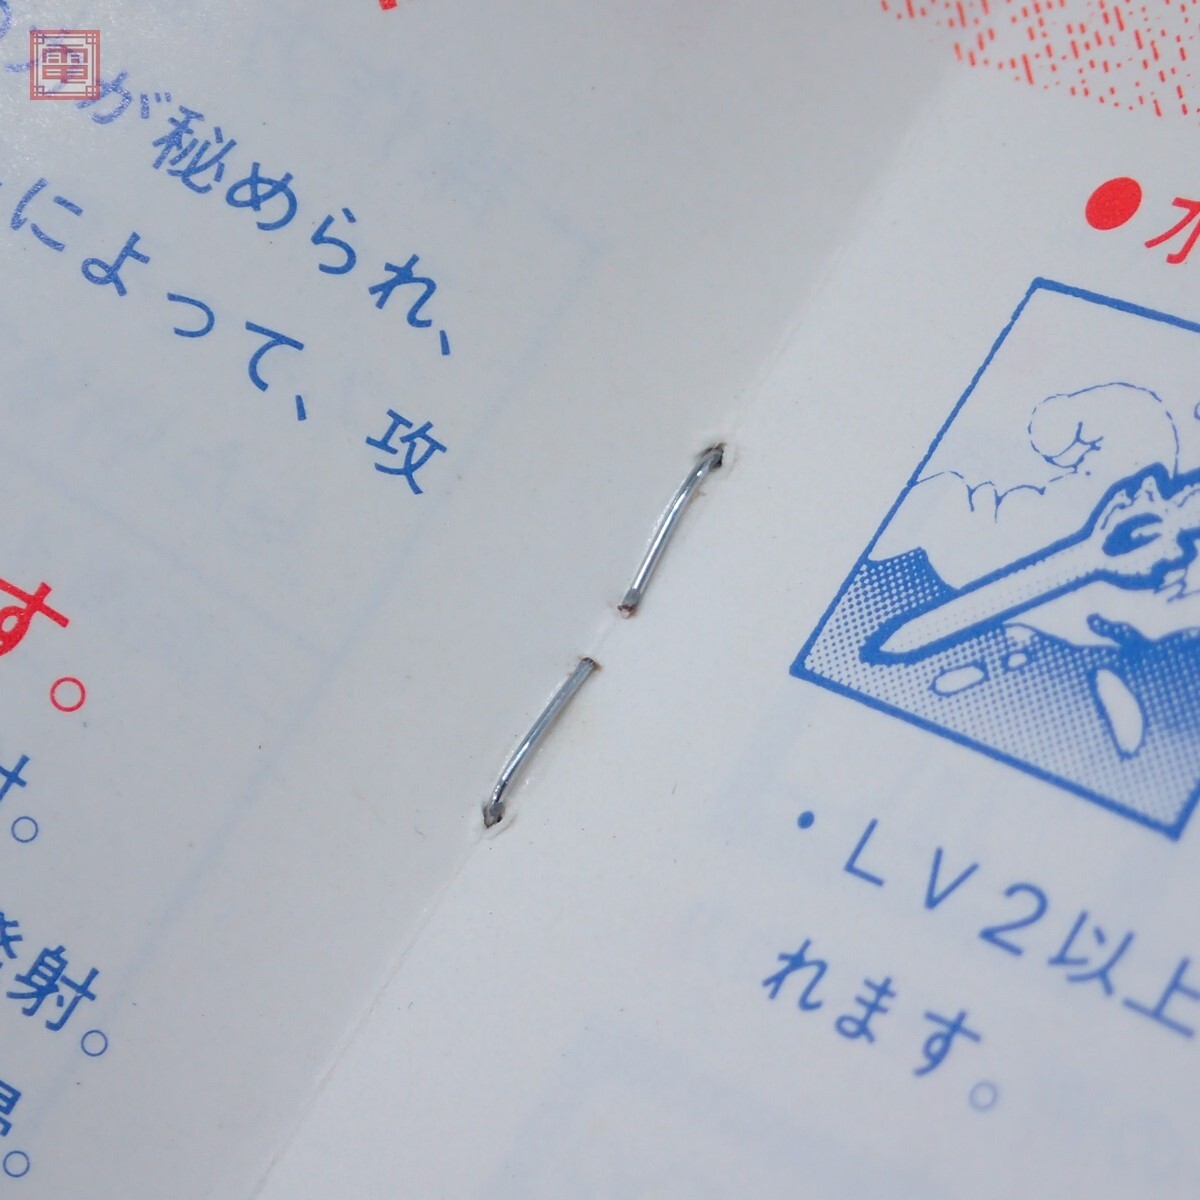 電
が秘められ、
によって、攻
す。
射。
●水
・LV2以上
れます。